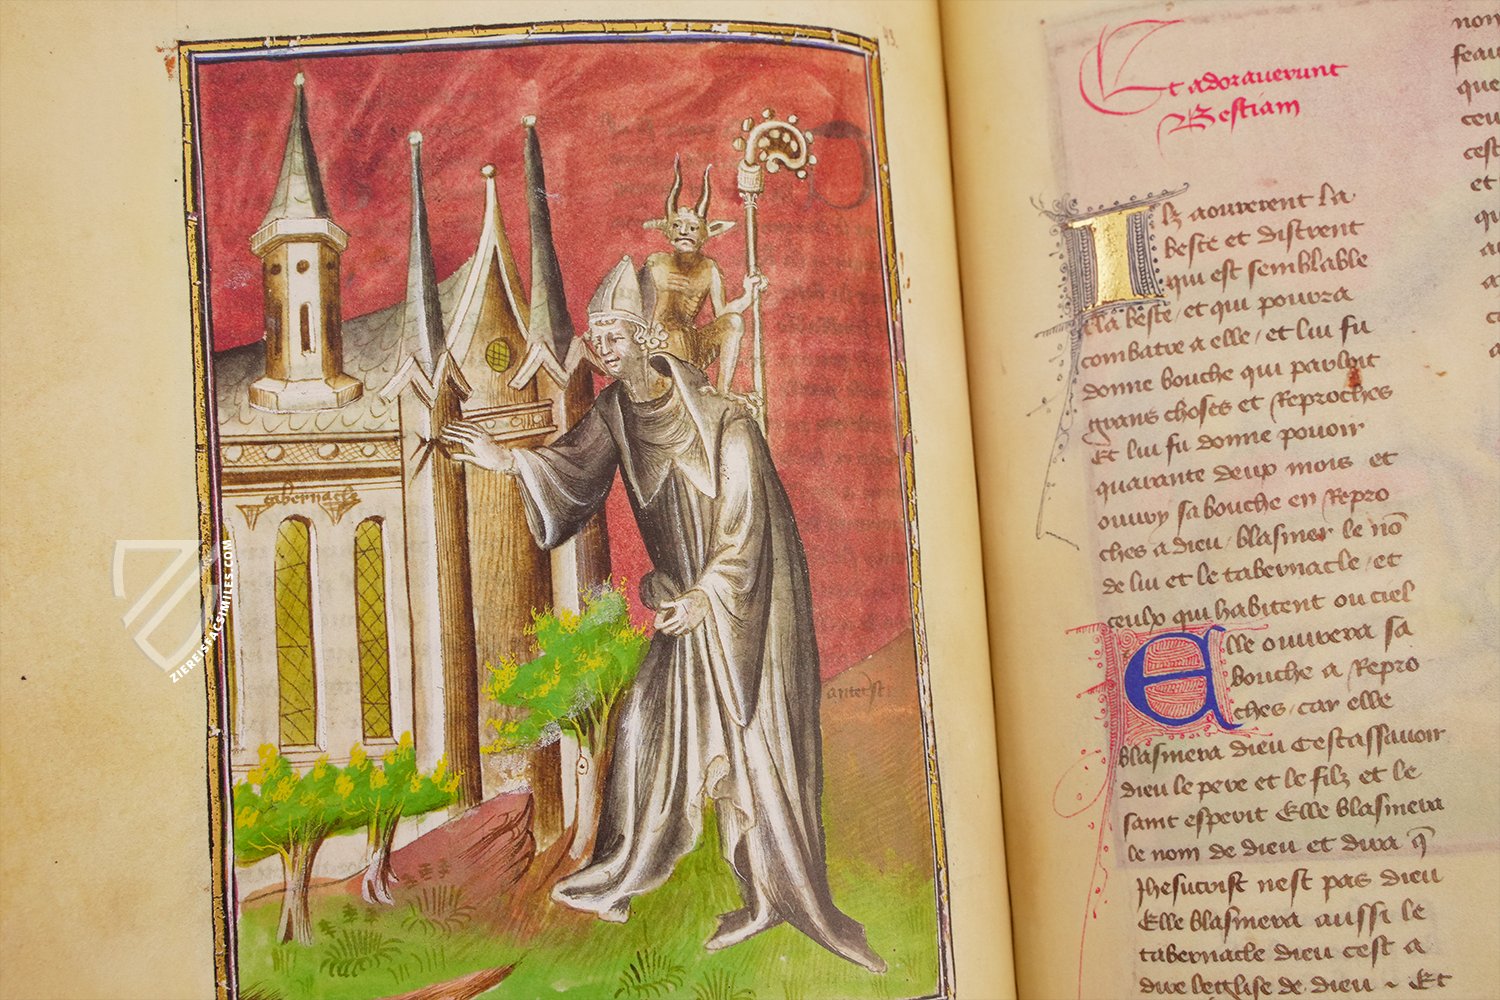 tabernacle
antecist
ZIEREISFACSIMILES.COM
Et adoraverunt
Bestiam
Ilz aourerent la
beste et distrent
qui est semblable
a la beste / et qui pourra
combatre a elle / et lui fu
donne bouche qui parloit
grans choses et Reproches
Et lui fu donne pouoir
quarante deux mois et
ouury sa bouche en Repro
ches a dieu / blasmer le nõ
de lui et le tabernacle / et
ceulx qui habitent ou ciel
Elle ouurera sa
bouche a Repro
ches / car elle
blasmera dieu Cestassauoir
dieu le pere et le filz et le
saint esperit Elle blasmera
le nom de dieu et dira q̃
Jhesucrist nest pas dieu
Elle blasmera aussi le
tabernacle dieu cest a
dire leglise de dieu ~ Et
non
feau
que
ceu
cest
et
qu